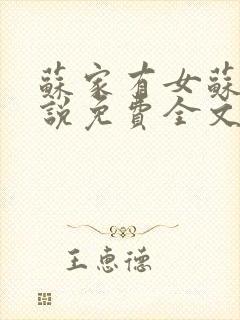 蘇家有女蘇
說免費全文
王惠德